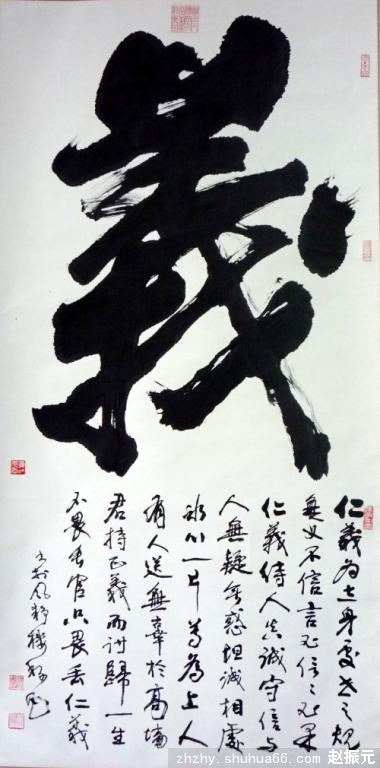 義
仁義為立身處世之規
無义不信言必信
仁義待人真誠守信与
人無疑無惑坦誠相處
冰心一片為上人
有人送無辜於高墙
君持正義而討歸一生
不畏丢官只畏丢仁義
zhzhy.shuhua66.com/赵振元